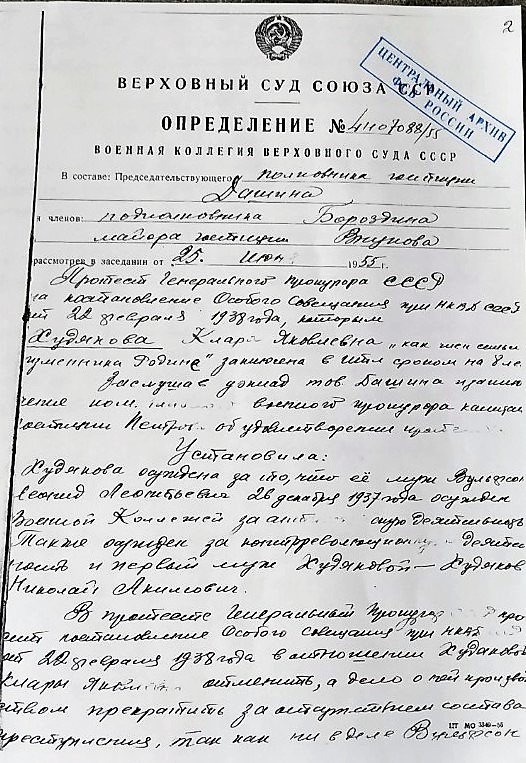 2
ВЕРХОВНЫЙ СУД СОЮЗА ССР
ЦЕНТРАЛЬНЫЙ АРХИВ
ФСБ РОССИИ
ОПРЕДЕЛЕНИЕ № 4н07088/55
ВОЕННАЯ КОЛЛЕГИЯ ВЕРХОВНОГО СУДА СССР
В составе: Председательствующего полковника юстиции
Дашина
и членов: подполковника Бороздина
майора юстиции
рассмотрев в заседании от 25. июня 1955 г.
Протест Генерального прокурора СССР
на постановление Особого Совещания при НКВД СССР
от 22 февраля 1938 года, которым
Худякова Клара Яковлевна „как член семьи
изменника Родине" заключена в ИТЛ сроком на 8 ле
Заслушав доклад тов. и заклю
чение пом. военного прокурора капитан
юстиции об удовлетворении
Установила:
Худякова осуждена за то, что её муж Вульфсон
Леонид Леонтьевич 26 декабря 1937 года осужден
Военной Коллегией за деятельность
Также осужден за контрреволюцион деятел
ность и первый муж Худяковой — Худяков
Николай Акимович.
В протесте Генеральный Прокурор про
сит постановление Особого совещания при НКВД
от 22 февраля 1938 года в отношении Худяковой
Клары отменить, а дело о ней производ
ством прекратить за отсутствием состава
преступления, так как ни в деле Вульфсон
ЦТ МО 3349-55